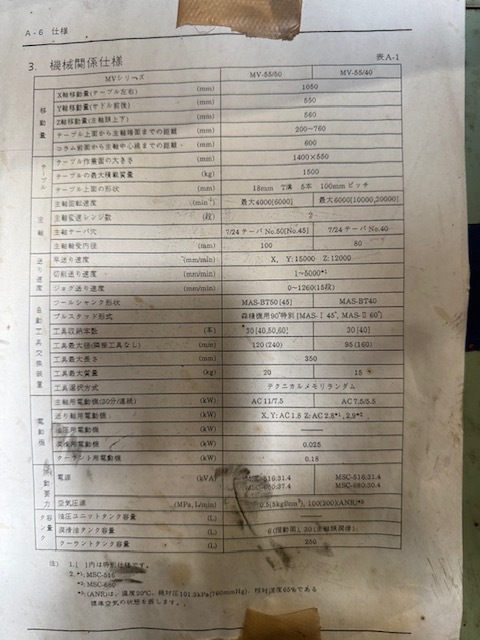 A-6 仕様
3. 機械関係仕様 表A-1
MVシリーズ MV-55/50 MV-55/40
移動量 X軸移動量(テーブル左右) (mm) 1050
Y軸移動量(サドル前後) (mm) 550
Z軸移動量(主軸頭上下) (mm) 560
テーブル上面から主軸端面までの距離 (mm) 200~760
コラム前面から主軸中心線までの距離 (mm) 600
テーブル テーブル作業面の大きさ (mm) 1400×550
テーブルの最大積載質量 (kg) 1500
テーブル上面の形状 (mm) 18mm T溝 5本 100mmピッチ
主軸 主軸回転速度 (min⁻¹) 最大4000[6000] 最大6000[10000,20000]
主軸変速レンジ数 (段) 2
主軸テーパ穴 7/24テーパNo.50[No.45] 7/24テーパNo.40
主軸軸受内径 (mm) 100 80
送り速度 早送り速度 (mm/min) X, Y:15000 Z:12000
切削送り速度 (mm/min) 1~5000*¹
ジョグ送り速度 (mm/min) 0~1260(15段)
自動工具交換装置 ツールシャンク形状 MAS-BT50[45] MAS-BT40
プルスタッド形式 森精機用90°特別[MAS-Ⅰ 45°, MAS-Ⅱ 60°]
工具収納本数 (本) 30[40,50,60] 30[40]
工具最大径(隣接工具なし) (mm) 120(240) 95(160)
工具最大長さ (mm) 350
工具最大質量 (kg) 20 15
工具選択方式 テクニカルメモリランダム
電動機 主軸用電動機(30分/連続) (kW) AC11/7.5 AC7.5/5.5
送り軸用電動機 (kW) X, Y:AC1.8 Z:AC2.8*¹, 2.9*²
油圧用電動機 (kW) ——
潤滑用電動機 (kW) 0.025
クーラント用電動機 (kW) 0.18
所要動力 電源 (kVA) MSC-516:31.4 MSC-516:31.4
37.4 30.4
空気圧源 (MPa, L/min) 100(200)(ANR)*³
タンク容量 油圧ユニットタンク容量 (L)
潤滑油タンク容量 (L) 6(摺動面), 30(主軸頭潤滑)
クーラントタンク容量 (L) 250
注) 1. [ ]内は特別仕様です。
2. *¹: MSC-516
*²: MSC-
*³: (ANR)は、温度20℃、絶対圧101.3kPa(760mmHg)、相対湿度65%である
標準空気の状態を表します。